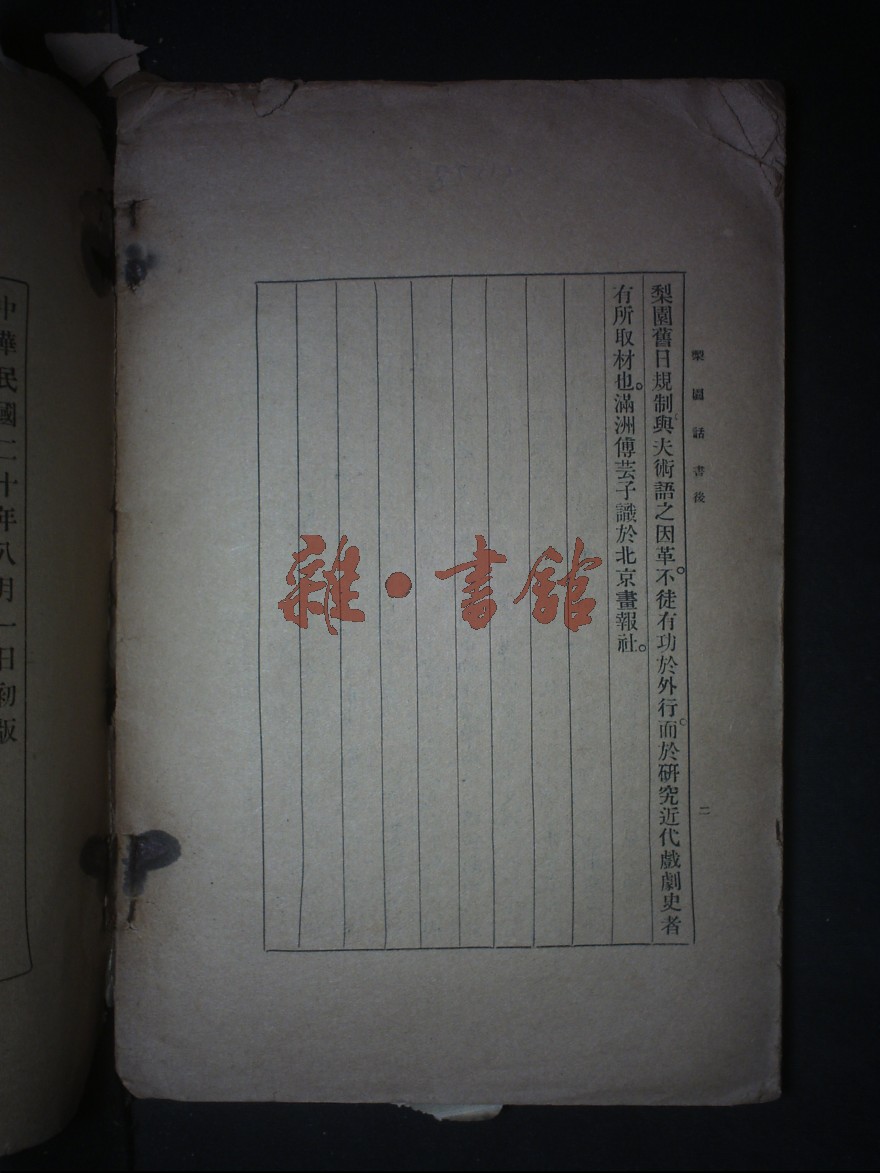 梨園話書後
二
梨園舊日規制與夫術語之因革。不徒有功於外行。而於研究近代戲劇史者
有所取材也。滿洲傅芸子識於北京畫報社。
雜·書館
中華民國二十年八月一日初版